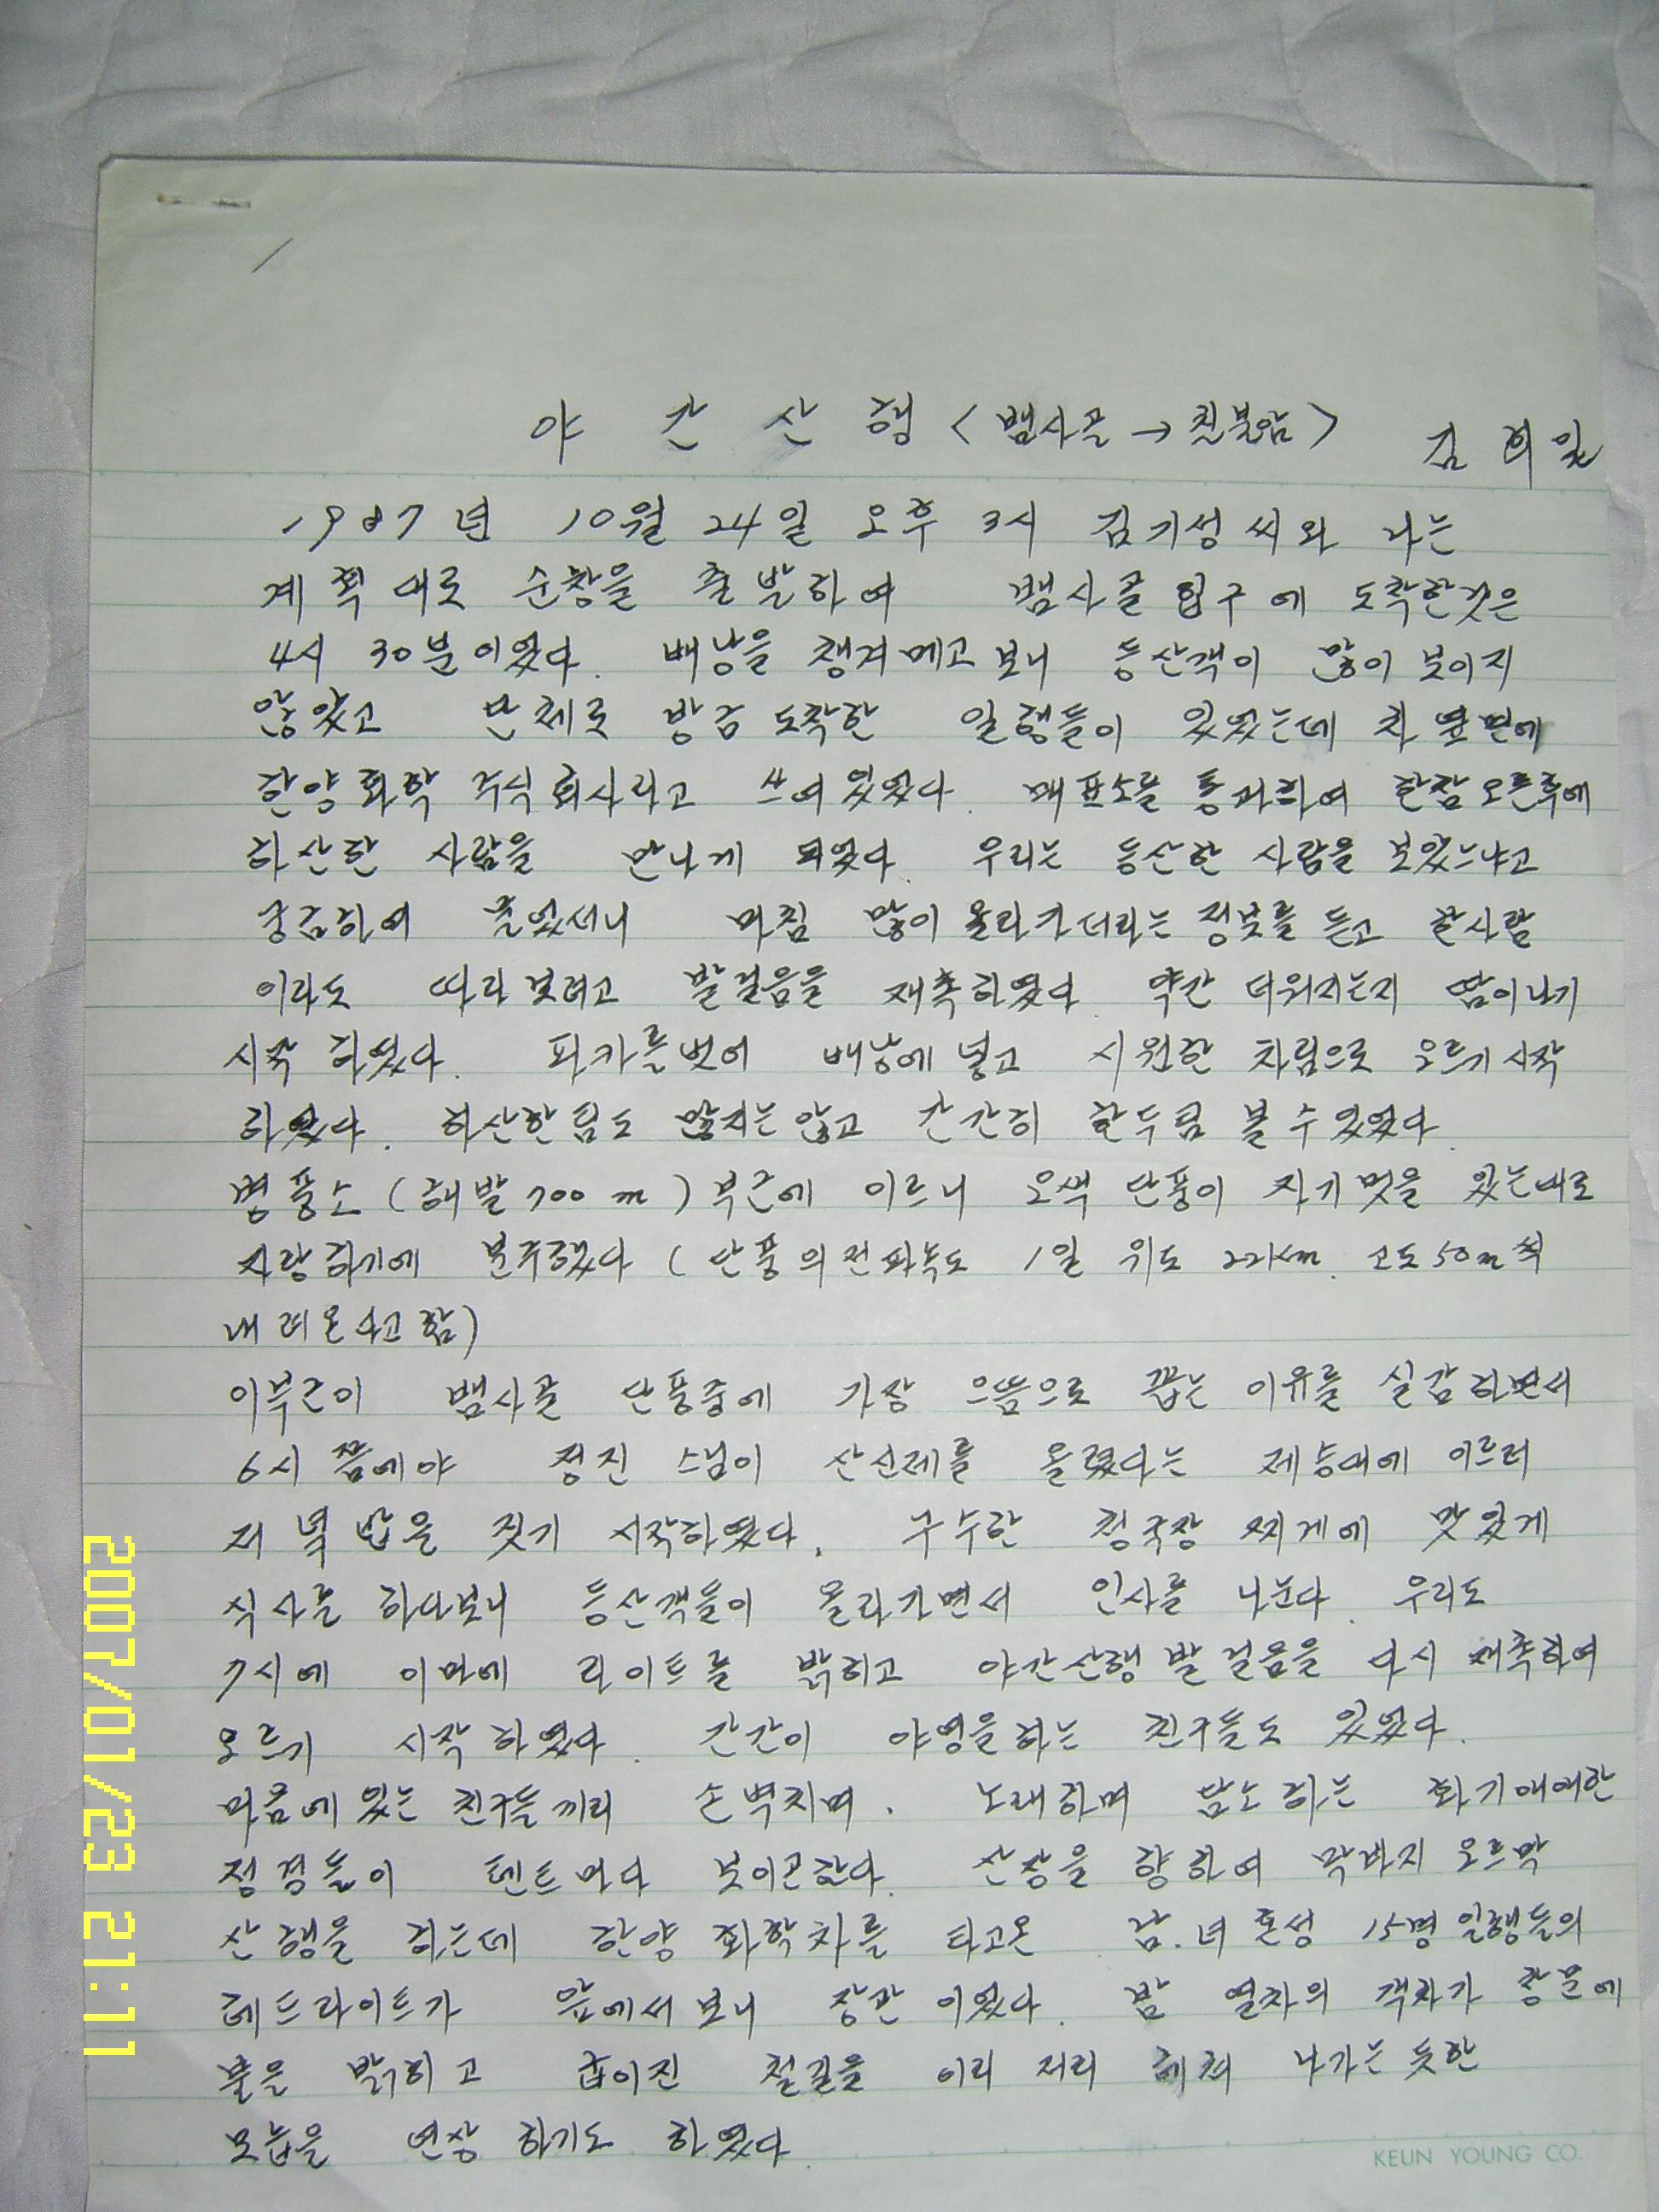 야 간 산 행 < 뱀사골 → 칠불암 >
김 희 일
1987년 10월 24일 오후 3시 김기성 씨와 나는
계획대로 순창을 출발하여 뱀사골 입구에 도착한것은
4시 30분이었다. 배낭을 챙겨메고 보니 등산객이 많이 보이지
않았고 단체로 방금 도착한 일행들이 있었는데 차 옆면에
한양화학 주식회사라고 쓰여있었다. 매표소를 통과하여 한참오른후에
하산한 사람을 만나게 되었다. 우리는 등산한 사람을 보았느냐고
궁금하여 물었더니 마침 많이 올라가더라는 정보를 듣고 한사람
이라도 따라보려고 발걸음을 재촉하였다. 약간 더워지는지 땀이나기
시작 하였다. 파카를벗어 배낭에 넣고 시원한 차림으로 오르기 시작
하였다. 하산한팀도 많지는 않고 간간히 한두팀 볼 수 있었다.
병풍소 (해발 700 m) 부근에 이르니 오색 단풍이 자기멋을 있는대로
자랑하기에 분주했다 (단풍의전파속도 1일 위도 22km. 고도 50m씩
내려온다고 함)
이부근이 뱀사골 단풍중에 가장 으뜸으로 꼽는 이유를 실감하면서
6시 쯤에야 정진 스님이 산신제를 올렸다는 제승대에 이르러
저녁밥을 짓기 시작하였다. 구수한 청국장 찌게에 맛있게
식사를 하다보니 등산객들이 올라가면서 인사를 나눈다. 우리도
7시에 이마에 라이트를 밝히고 야간산행 발걸음을 다시 재촉하여
오르기 시작하였다. 간간이 야영을하는 친구들도 있었다.
마음에 있는 친구들끼리 손벽치며. 노래하며 담소하는 화기애애한
정경들이 텐트마다 보이곤한다. 산장을 향하여 막바지 오르막
산행을 하는데 한양 화학차를 타고온 남.녀 혼성 15명 일행들의
헤드라이트가 앞에서 보니 장관 이었다. 밤 열차의 객차가 창문에
불을 밝히고 굽이진 철길을 이리 저리 헤쳐 나가는 듯한
모습을 연상 하기도 하였다.
KEUN YOUNG CO.
2007/01/23 21:11